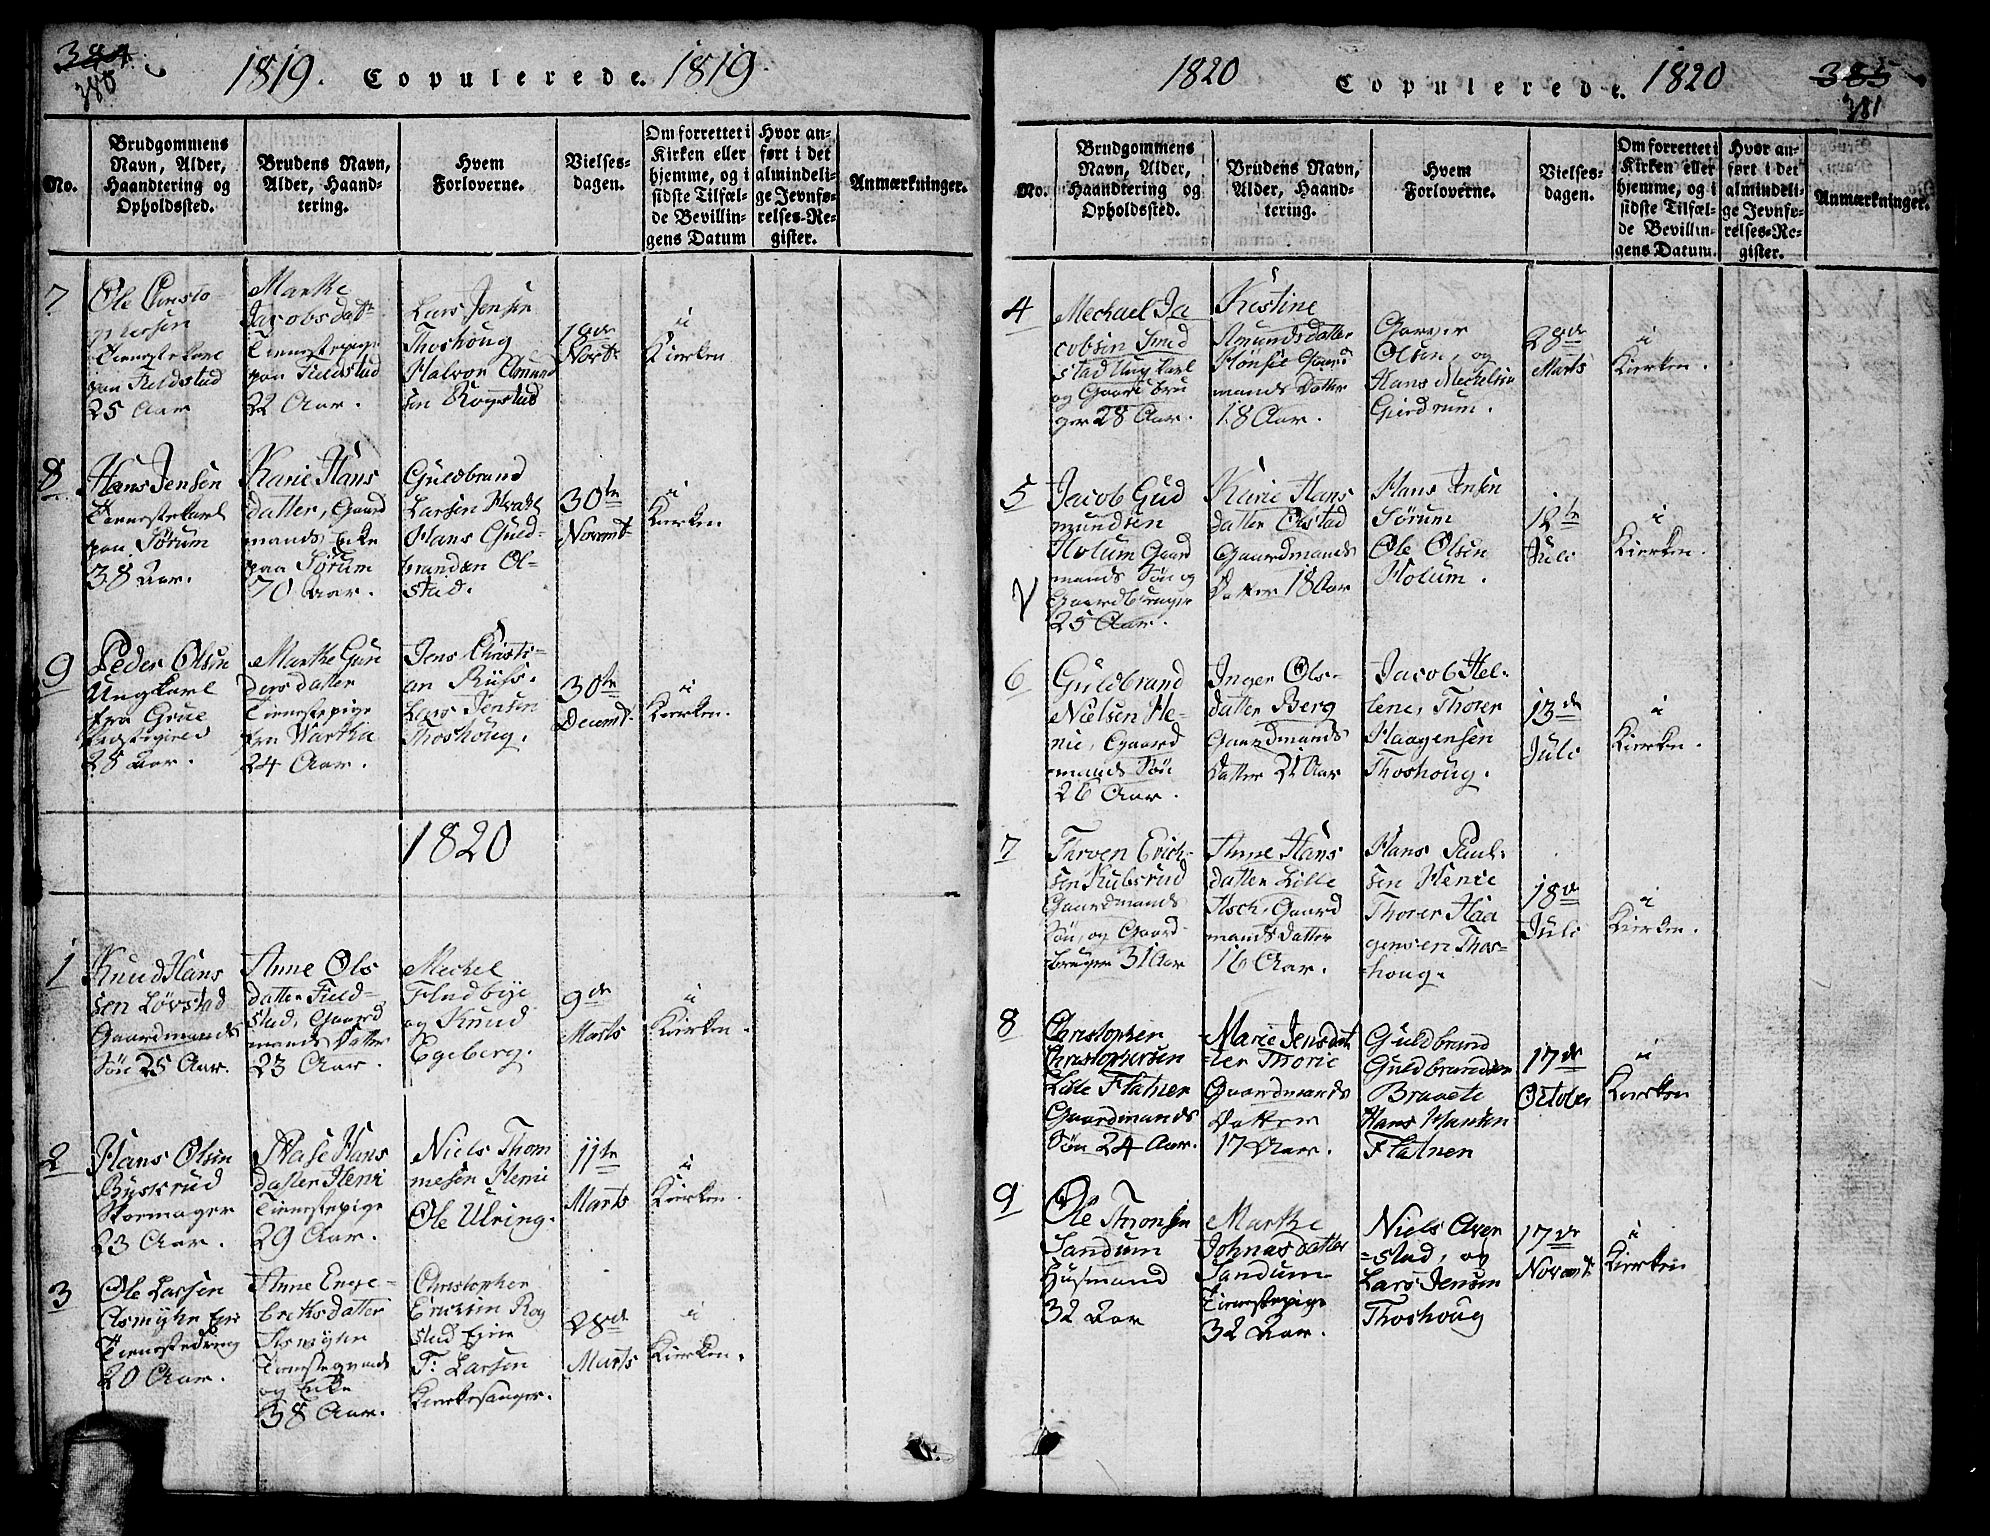 384.
380
1819. Copulerede. 1819.
No.
Brudgommens
Navn, Alder,
Haandtering og
Opholdssted.
Brudens Navn,
Alder, Haand-
tering.
Hvem
Forloverne.
Vielses-
dagen.
Om forrettet i
Kirken eller
hjemme, og i
sidste Tilfæl-
de Bevillin-
gens Datum
Hvor an-
ført i det
almindeli-
ge Jevnfø-
relses-Re-
gister.
Anmærkninger.
7
Ole Christo-
phersen
Tienestekarl
paa Fieldstad
25 Aar
Marthe
Jacobsdatr
Tienestepige
paa Fieldstad
22 Aar.
Lars Jensen
Thoshoug
Halvor Amund
sen Rogstad
18de
Novbr
i
Kierken
8
Hans Jensen
Tienestekarl
paa Sørum
38 Aar.
Karie Hans
datter, Gaard
mands Enke
paa Sørum
70 Aar.
Guldbrand
Larsen
Hans Guld-
brandsen Ol-
stad.
30te
Novembr
i
Kierken
9
Peder Olsen
Ungkarl
fra Grue
Præstegield
28 Aar.
Marthe Gun
dersdatter
Tienestepige
fra
24 Aar.
Jens Christi-
an Riiss.
Lars Jensen
Thoshoug.
30te
Decembr.
i
Kierken.
1820
1
Knud Hans
sen Løvstad
Gaardmands
Søn 25 Aar.
Anne Ols
datter Field-
stad, Gaard
mands Datter
23 Aar.
Mechel
Fladbye
og Knud
Egeberg.
9de
Marts
i
Kierken.
2
Hans Olsen
Byskrud
Skoemager
23 Aar.
Aase Hans
datter Heni
Tienestepige
29 Aar.
Niels Thom
mesen Heni
Ole Ulring.
11te
Marts
i
Kierken.
3
Ole Larsen
Asmyhr Eje
Tienestedreng
20 Aar.
Anne Enge-
brethsdatter
Asmyhr
og Enke
38 Aar.
Christopher
Erichsen Rog
stad Ejer
T: Larsen
Kierkesanger.
28de
Marts
i
Kierken.
385
381
1820 Copulerede. 1820
No.
Brudgommens
Navn, Alder,
Haandtering og
Opholdssted.
Brudens Navn,
Alder, Haand-
tering.
Hvem
Forloverne.
Vielses-
dagen.
Om forrettet i
Kirken eller
hjemme, og i
sidste Tilfæl-
de Bevillin-
gens Datum.
Hvor an-
ført i det
almindeli-
ge Jevnfø-
relses-Re-
gister.
Anmærkninger.
4
Mechael Ja
cobsen Smed
stad Ungkarl
og Gaardbru
ger 28 Aar.
Kistine
Amundsdatter
Hønsie Gaard
mands Datter
18 Aar.
Olsen, og
Hans Mechelsen
Gierdrum.
28de
Marts
i
Kierken.
5
V
Jacob Gud
mundsen
Holum Gaard
mands Søn og
Gaardbruger
25 Aar.
Karie Hans
datter Olstad
Gaardmands
Datter 18 Aar
Hans Jensen
Sørum
Ole Olsen
Holum.
12te
Juli
i
Kierken.
6
Guldbrand
Nielsen He-
nie, Gaard
mands Søn
26 Aar.
Inger Ols-
datter Berg
Gaardmands
Datter 21 Aar
Jacob Hel-
lene, Thorer
Haagensen
Thoshoug.
13de
Juli
i
Kierken.
7
Torven Erich-
sen Kulsrud
Gaardmands
Søn, og Gaard-
bruger 31 Aar
Anne Hans
datter Lille
Ask, Gaard
mands datter
16 Aar.
Hans Paul-
sen Henie
Thorer Haa
gensen Thos-
houg.
18de
Juli
i
Kierken.
8
Christopher
Christophersen
Lille Flatner
Gaardmands
Søn 24 Aar.
Marie Jensdat
ter Thorie
Gaardmands
Datter
17 Aar.
Guldbrand
Guldbrandsen
Braaete
Hans Hansen
Flatner
17de
October
i
Kierken
9
Ole Thronsen
Sandum
Husmand
32 Aar
Marthe
Johnasdatter
Sandum
Tienestepige
32 Aar.
Niels Aver
stad, og
Lars Jensen
Thoshoug
17de
Novembr
i
Kierken